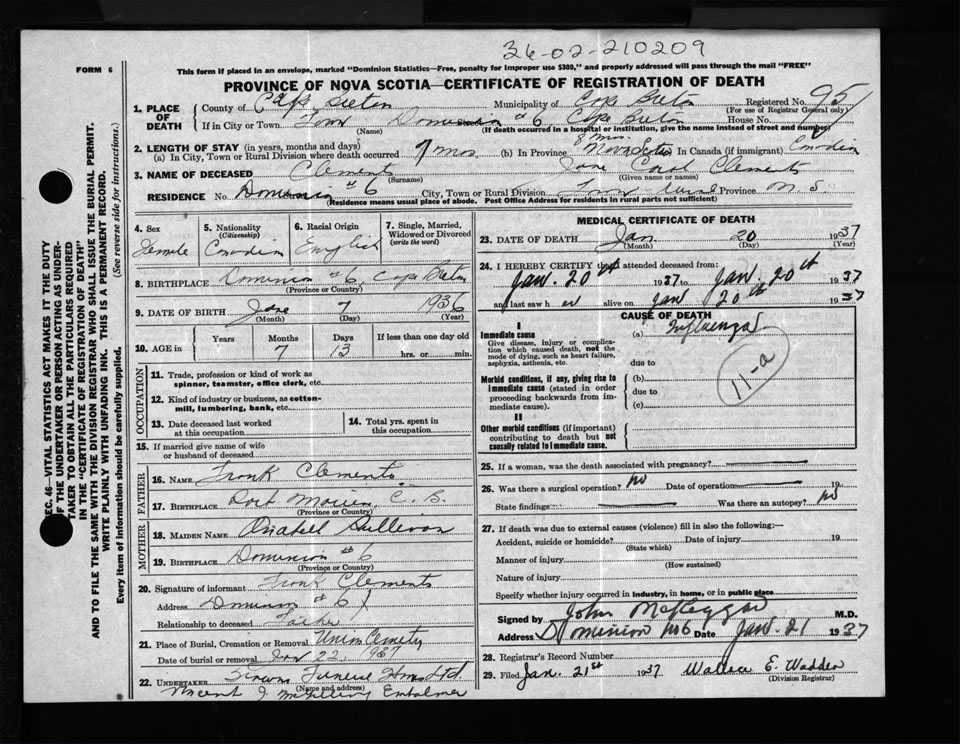 36-02-210209
FORM 6
This form if placed in an envelope, marked "Dominion Statistics—Free, penalty for improper use $300," and properly addressed will pass through the mail "FREE"
PROVINCE OF NOVA SCOTIA—CERTIFICATE OF REGISTRATION OF DEATH
1. PLACE OF DEATH
County of Cape Breton Municipality of Cape Breton Registered No. 95
(For use of Registrar General only)
If in City or Town Town Dominion #6 Cape Breton House No.
(Name) (If death occurred in a hospital or institution, give the name instead of street and number)
2. LENGTH OF STAY (in years, months and days) 8 mos.
(a) In City, Town or Rural Division where death occurred 7 mos. (b) In Province Nova Scotia In Canada (if immigrant)
3. NAME OF DECEASED Clements Carol Clements
(Surname) (Given name or names)
RESIDENCE No. Dominion #6 City, Town or Rural Division Town Rural Province N. S
(Residence means usual place of abode. Post Office Address for residents in rural parts not sufficient)
4. Sex
Female
5. Nationality
(Citizenship)
Canadian
6. Racial Origin
English
7. Single, Married, Widowed or Divorced
(write the word)
8. BIRTHPLACE Dominion #6, Cape Breton
(Province or Country)
9. DATE OF BIRTH June 7 1936
(Month) (Day) (Year)
10. AGE in Years Months Days If less than one day old
7 13 hrs. or min.
OCCUPATION
11. Trade, profession or kind of work as spinner, teamster, office clerk, etc.
12. Kind of industry or business, as cotton-mill, lumbering, bank, etc.
13. Date deceased last worked at this occupation
14. Total yrs. spent in this occupation
15. If married give name of wife or husband of deceased
FATHER
16. Name Frank Clements
17. Birthplace Port Morien C. B.
(Province or Country)
MOTHER
18. Maiden Name Sullivan
19. Birthplace Dominion #6
(Province or Country)
20. Signature of informant Frank Clements
Address Dominion #6
Relationship to deceased Father
21. Place of Burial, Cremation or Removal Union Cemetery
Date of burial or removal Jan 22, 1937
22. Undertaker Funeral Home Ltd.
(Name and address)
Vincent J. Embalmer
MEDICAL CERTIFICATE OF DEATH
23. DATE OF DEATH Jan. 20 1937
(Month) (Day) (Year)
24. I HEREBY CERTIFY that I attended deceased from:
Jan. 20th 1937 to Jan. 20th 1937
and last saw her alive on Jan 20th 1937
CAUSE OF DEATH
I
Immediate cause
Give disease, injury or complication which caused death, not the mode of dying, such as heart failure, asphyxia, asthenia, etc.
(a) Influenza
due to
11-a
Morbid conditions, if any, giving rise to immediate cause (stated in order proceeding backwards from immediate cause)
(b)
due to
(c)
II
Other morbid conditions (if important) contributing to death but not causally related to immediate cause.
25. If a woman, was the death associated with pregnancy?
26. Was there a surgical operation? No Date of operation 19
State findings Was there an autopsy? No
27. If death was due to external causes (violence) fill in also the following:—
Accident, suicide or homicide? Date of injury 19
(State which)
Manner of injury
(How sustained)
Nature of injury
Specify whether injury occurred in industry, in home, or in public place
Signed by John M.D.
Address Dominion No 6 Date Jan. 21 1937
28. Registrar's Record Number
29. Filed Jan. 21st 1937 Wallace E. Wadden
(Division Registrar)
SEC. 46—VITAL STATISTICS ACT MAKES IT THE DUTY
OF THE UNDERTAKER OR PERSON ACTING AS UNDER-
TAKER TO OBTAIN ALL THE PARTICULARS REQUIRED
IN THE "CERTIFICATE OF REGISTRATION OF DEATH"
AND TO FILE THE SAME WITH THE DIVISION REGISTRAR WHO SHALL ISSUE THE BURIAL PERMIT.
WRITE PLAINLY WITH UNFADING INK. THIS IS A PERMANENT RECORD.
Every item of information should be carefully supplied. (See reverse side for instructions.)